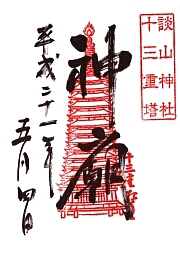 談山神社
十三重塔
神廟
平成二十一年
五月四日